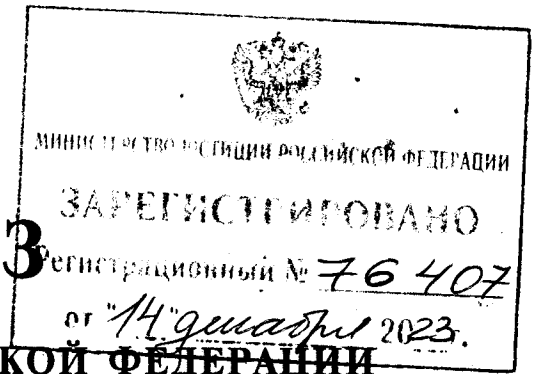 МИНИСТЕРСТВО ЮСТИЦИИ РОССИЙСКОЙ ФЕДЕРАЦИИ
ЗАРЕГИСТРИРОВАНО
З
Регистрационный № 76 407
от "14" декабря 2023г.
КОЙ ФЕДЕРАЦИИ